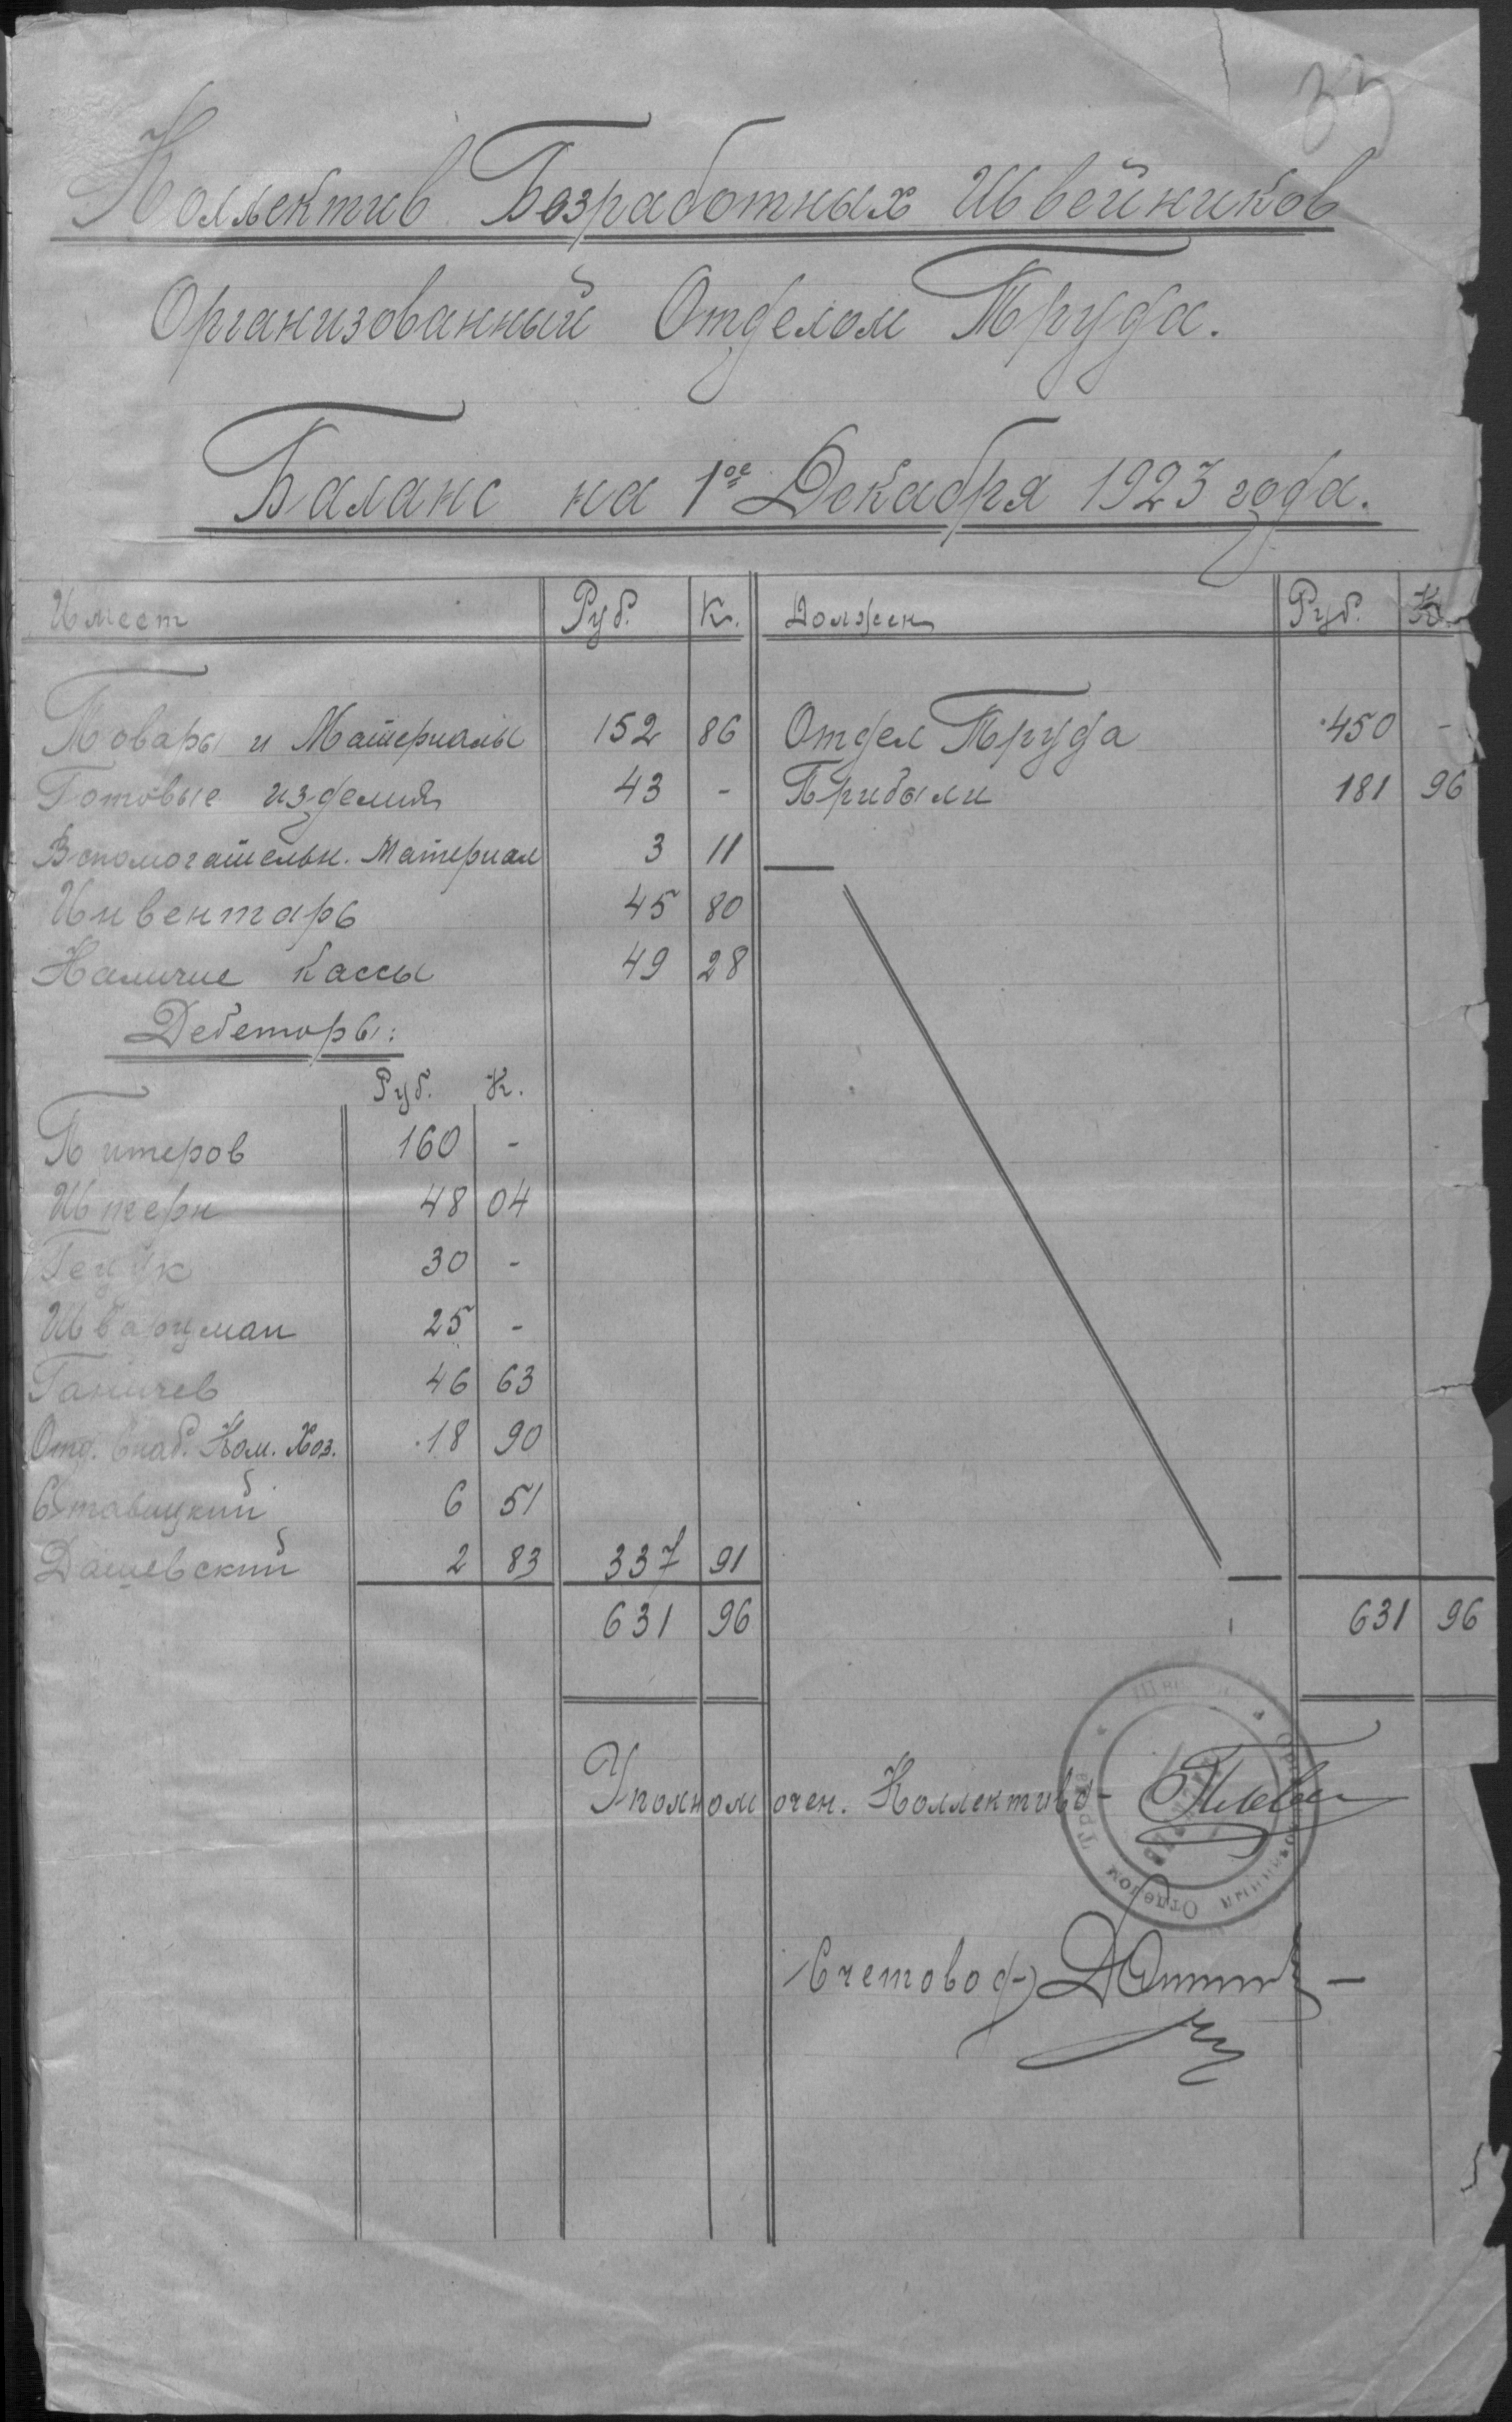 33
Коллектив Безработных Швейников
Организованный Отделом Труда.
Баланс на 1ое Декабря 1923 года.
Имеет Руб. К. Должен Руб. К.
Товары и Материалы 152 86 Отдел Труда 450 -
Готовые изделия 43 - Прибыли 181 96
Вспомогательн. Материал 3 11
Инвентарь 45 80
Наличие кассы 49 28
Дебеторы:
Руб. К.
Питеров 160 -
Штерн 48 04
Гецук 30 -
Шварцман 25 -
Ганичев 46 63
Отд. Снаб. Ком. Хоз. 18 90
Ставицкий 6 51
Дашевский 2 83 337 91
631 96 631 96
Уполномочен. Коллектива
Отделом
Счетовод